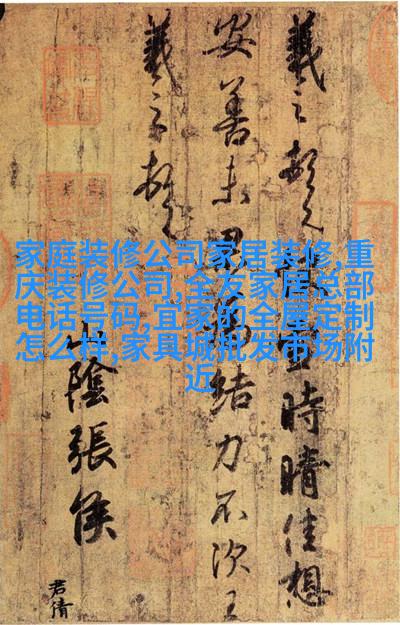 家庭装修公司家居装修,重
庆装修公司,全友家居总部
电话号码,宜家的全屋定制
怎么样,家具城批发市场附
近
羲之頓首雪時晴佳想
安善未果為結力不次王
羲之頓首
山陰張侯
君倩